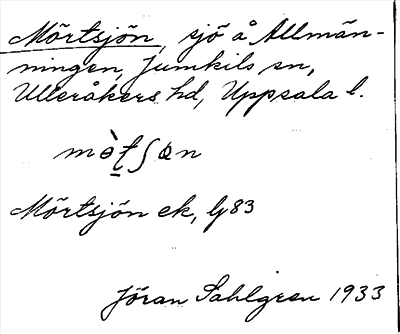 Mörtsjön, sjö å Allmän-
ningen, Jumkils sn,
Ulleråkers hd, Uppsala l.
Mörtsjön ek, lg 83
Jöran Sahlgren 1933